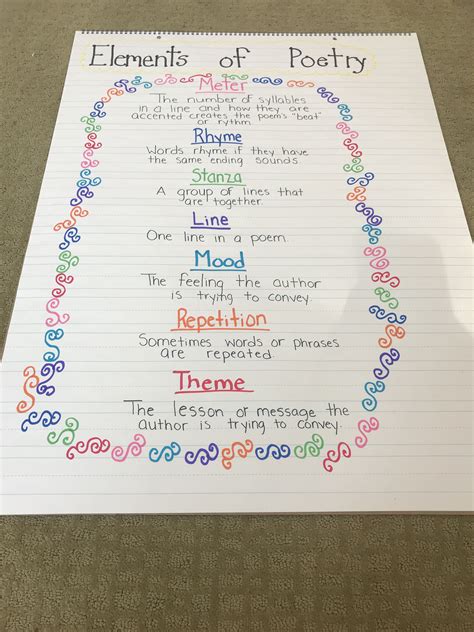 Elements of Poetry
Meter
The number of syllables
in a line and how they are
accented creates the poem's "beat"
or rythm.
Rhyme
Words rhyme if they have
the same ending sounds.
Stanza
A group of lines that
are together.
Line
One line in a poem.
Mood
The feeling the author
is trying to convey.
Repetition
Sometimes words or phrases
are repeated.
Theme
The lesson or message the
author is trying to convey.